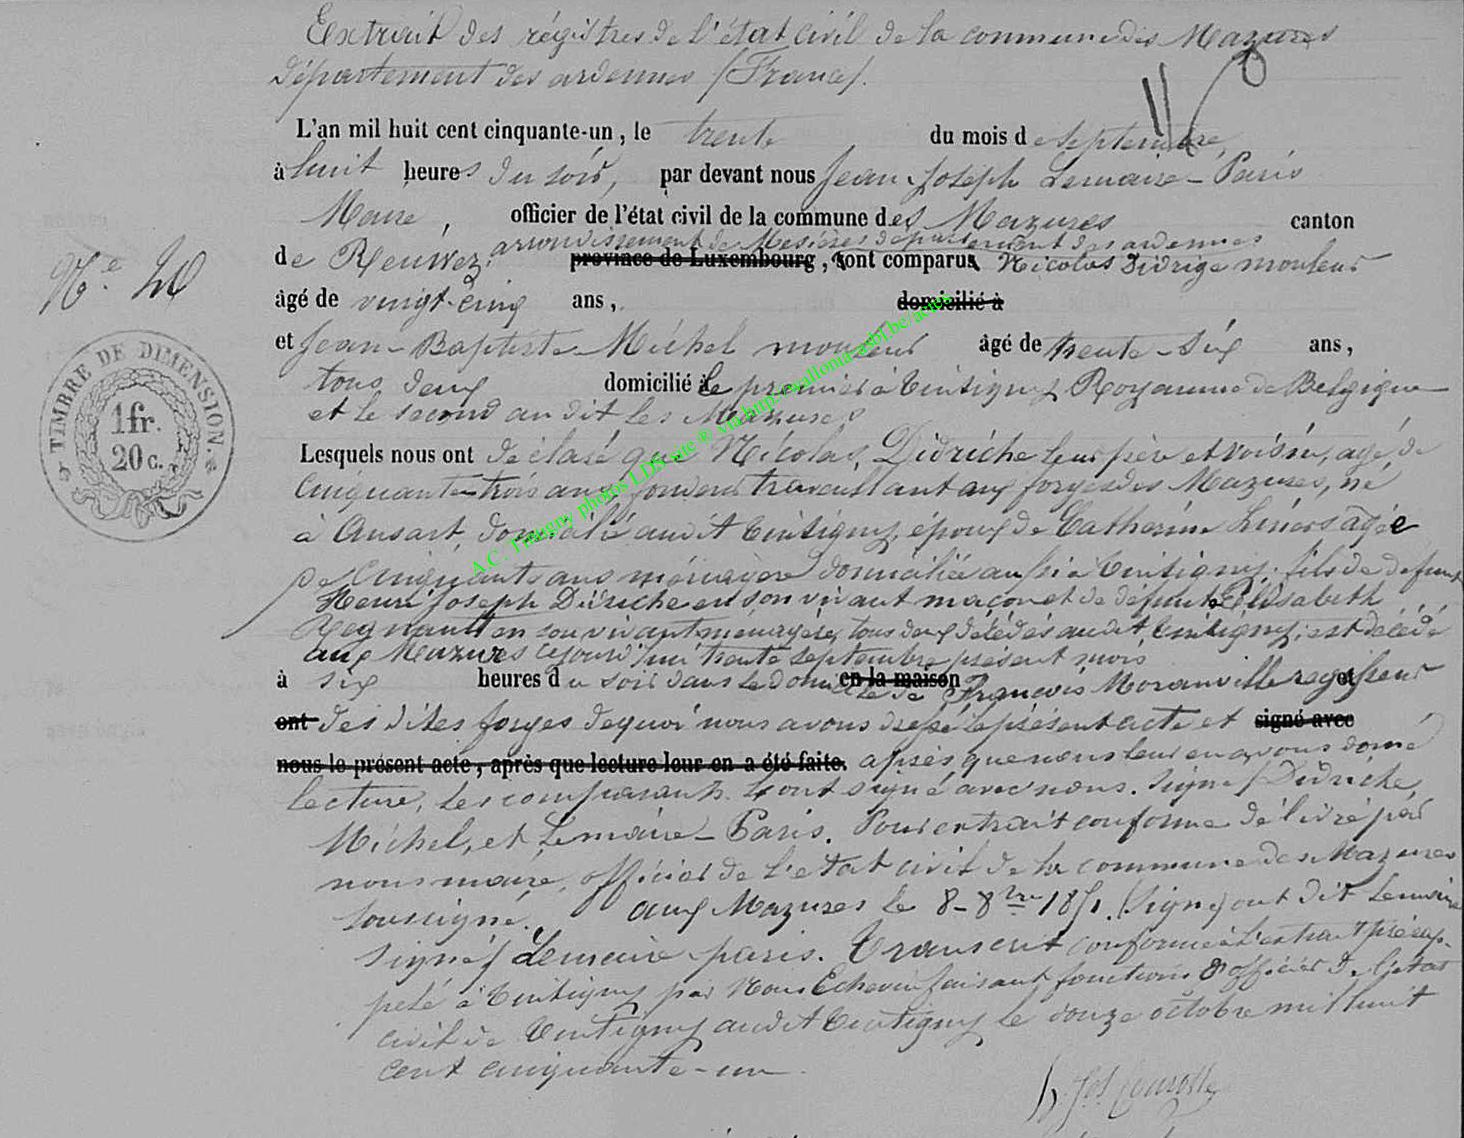 Extrait des régistres de l'état civil de la commune des Mazures
Département des ardennes (France).
L'an mil huit cent cinquante-un, le trente du mois de septembre,
à huit heures du soir, par devant nous Jean Joseph Lemaire-Paris
Maire, officier de l'état civil de la commune des Mazures canton
arrondissement de Mesières département des ardennes
de Renwez. province de Luxembourg, sont comparus Nicolas Didrige mouleur
N.e 40
âgé de vingt-cinq ans, domicilié à
et Jean-Baptiste Michel mouleur âgé de trente-six ans,
tous deux domicilié le premier à Tintigny Royaume de Belgique
et le second au dit les Mazures
TIMBRE DE DIMENSION.
1 fr.
20 c.
Lesquels nous ont déclaré que Nicolas, Didriche leur père et voisin, agé de
Cinquante-trois ans fondeur travaillant aux forges des Mazures, né
à Ansart, domicilié audit Tintigny, époux de Catherine agée
de Cinquante ans ménagère domiciliée aussi à Tintigny. fils de défunt
Henri Joseph Didriche en son vivant maçon et de defunte Elisabeth
en son vivant ménagère, tous deux décédés audit Tintigny, est décédé
aux Mazures cejourd'hui trente septembre présent mois
à six heures du soir dans le domicile de en la maison François Moranville regisseur et
ont des dites forges dequoi nous avons dressé le présent acte et signé avec
nous le présent acte, après que lecture leur en a été faite. après que nous leur en avons donné
lecture, les comparants l'ont signé avec nous. signé/ Didriche,
Michel, et Lemaire-Paris. Pour extrait conforme délivré par
nous maire, officier de l'état civil de la commune des Mazures
soussigné. aux Mazures le 8-8bre 1851. (signe) ont dit Lemaire
signé/ Lemaire-paris. Transcrit conforme à l'extrait précap-
pelé à Tintigny par Nous Echevin faisant fonctions d'officier de l'état
civil de Tintigny audit Tintigny le douze octobre mil huit
cent cinquante-un
A.C. Tintigny photos LDS site ® via http://wallonia-asbl.be/actes